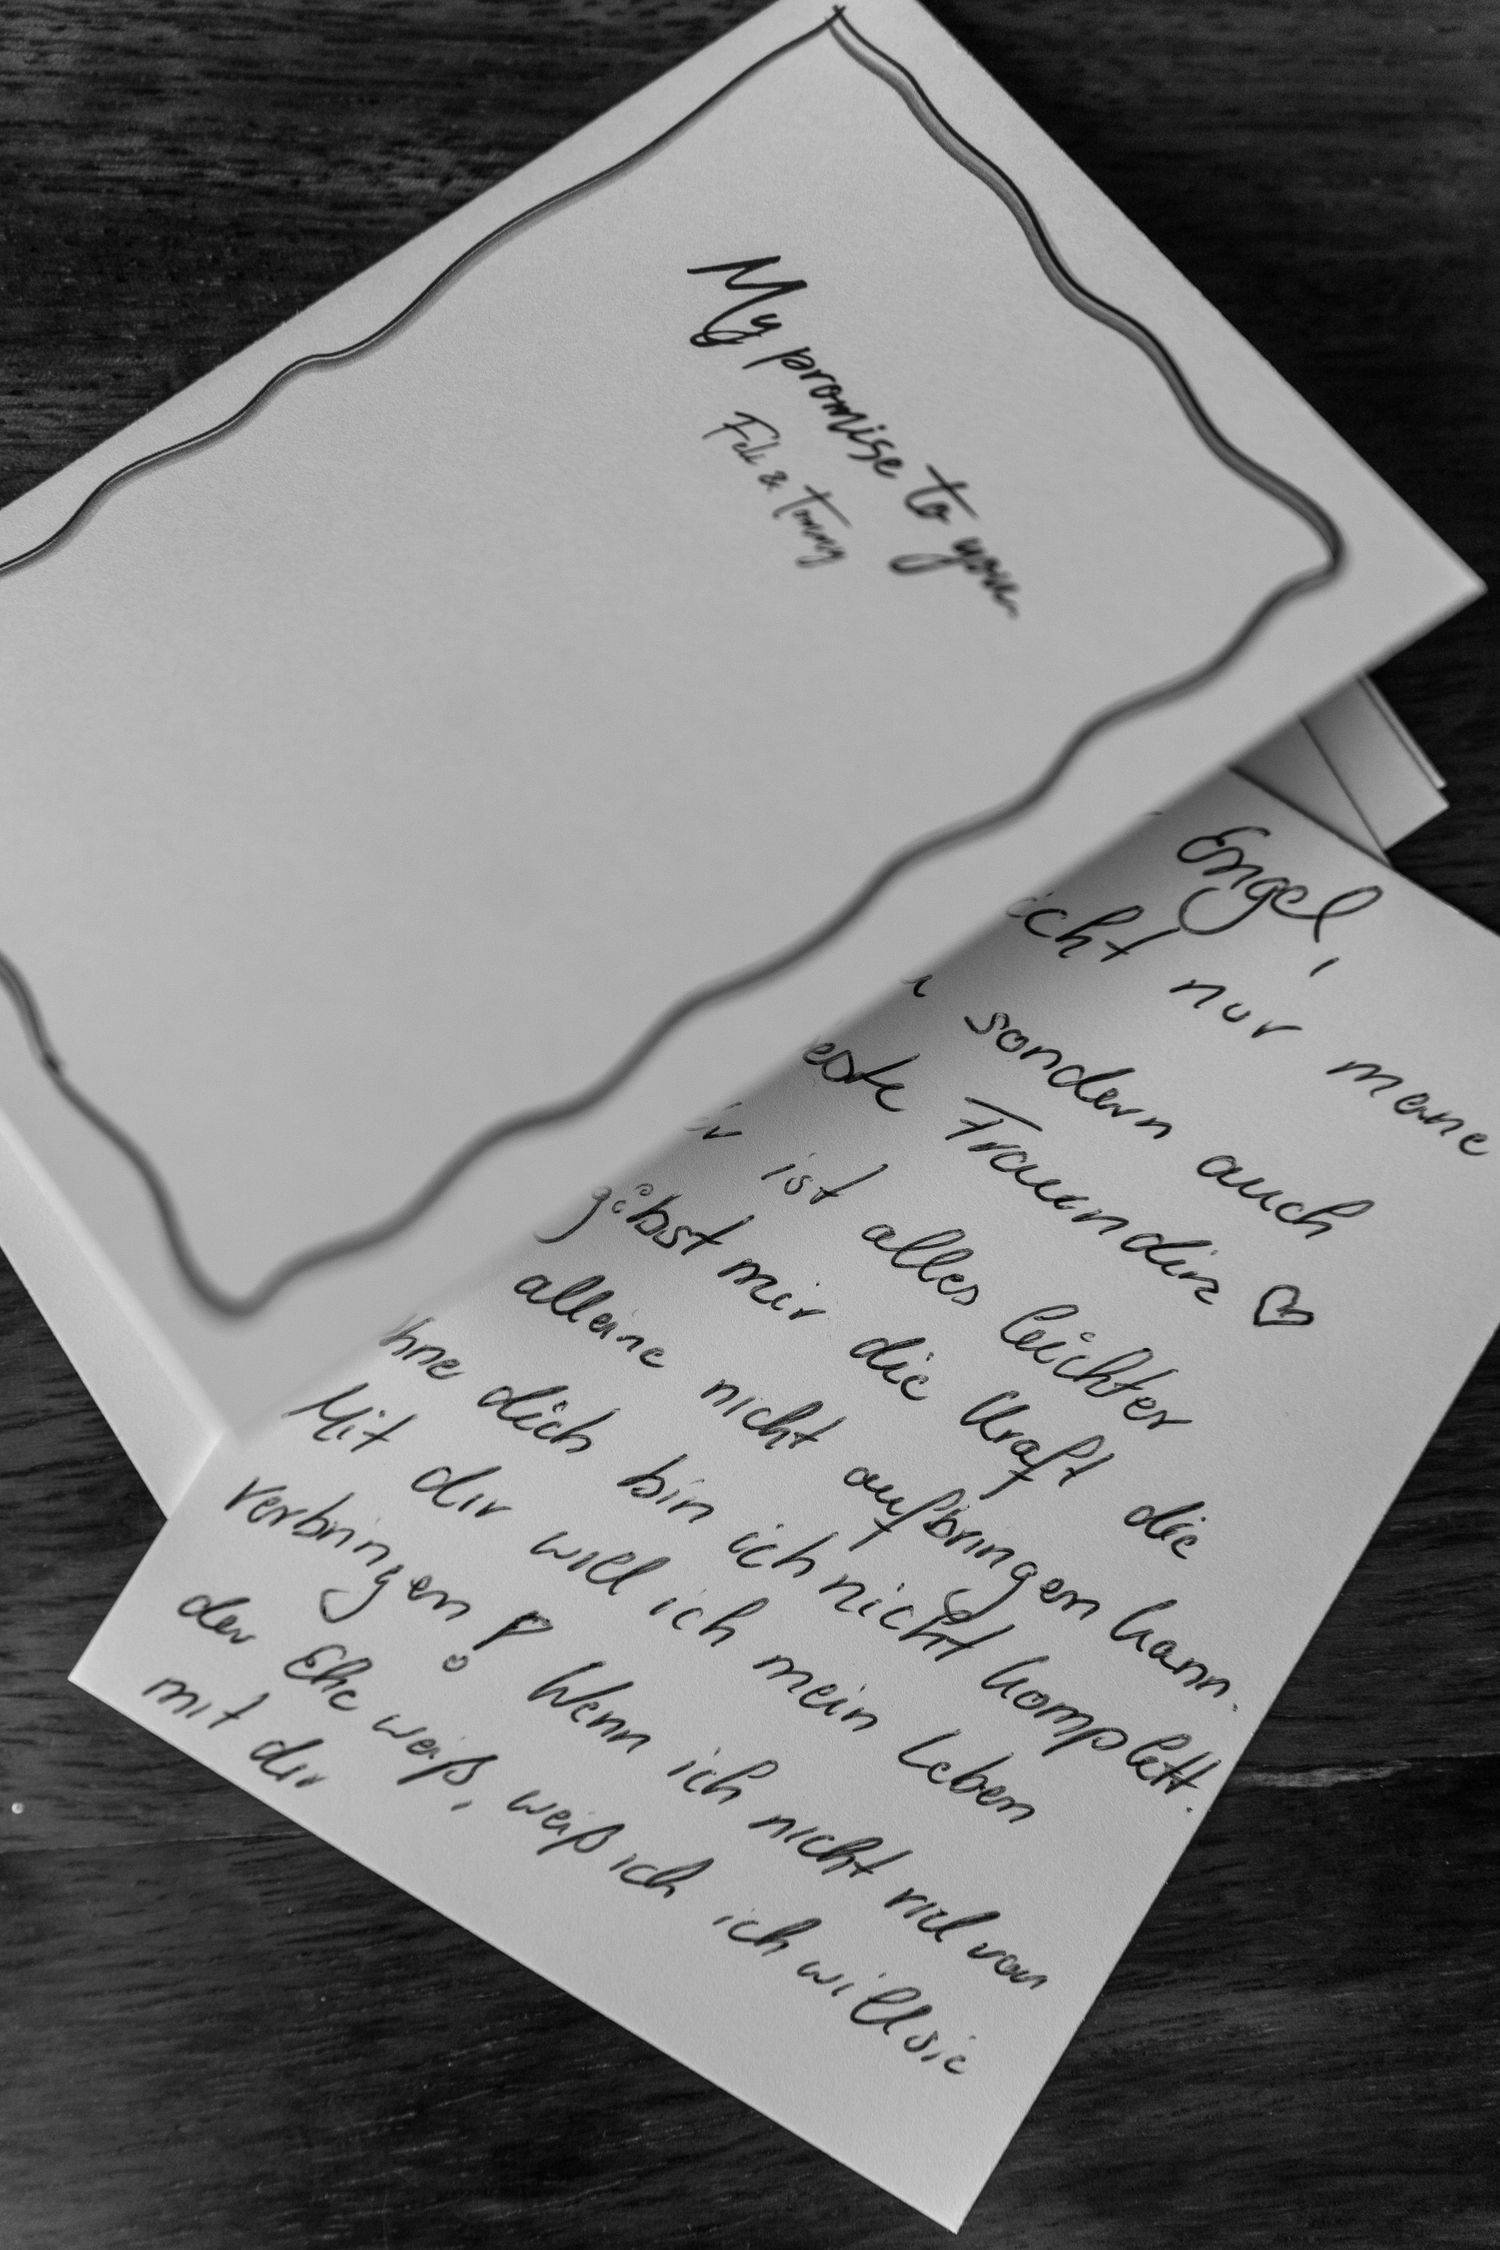 My promise to you
Feli & Tommy
Engel,
nicht nur meine
sondern auch
beste Freundin ♡
ist alles leichter
gibst mir die Kraft die
alleine nicht aufbringen kann.
hne dich bin ich nicht komplett.
Mit dir will ich mein Leben
verbringen! Wenn ich nicht viel von
der Ehe weiß, weiß ich ich will sie
mit dir